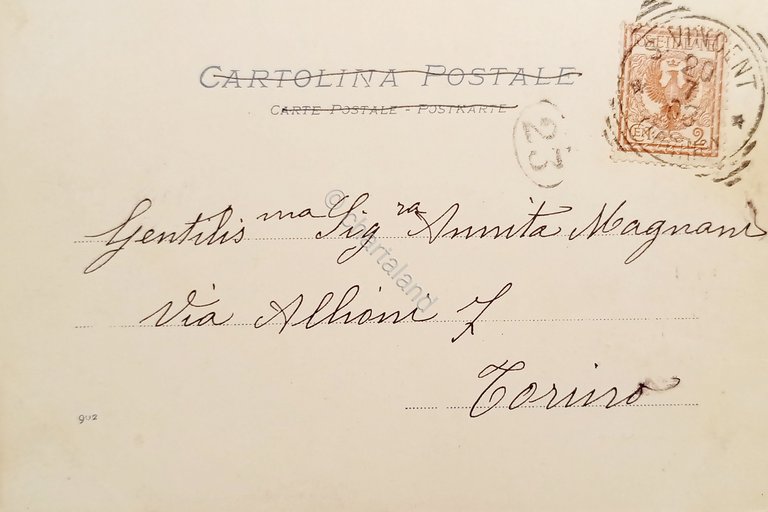 CARTOLINA POSTALE
CARTE POSTALE - POSTKARTE
23
20
7
03
2
Gentilis ma Sig ra Annita Magnani
Via Allioni 7
Torino
902
© chartaland